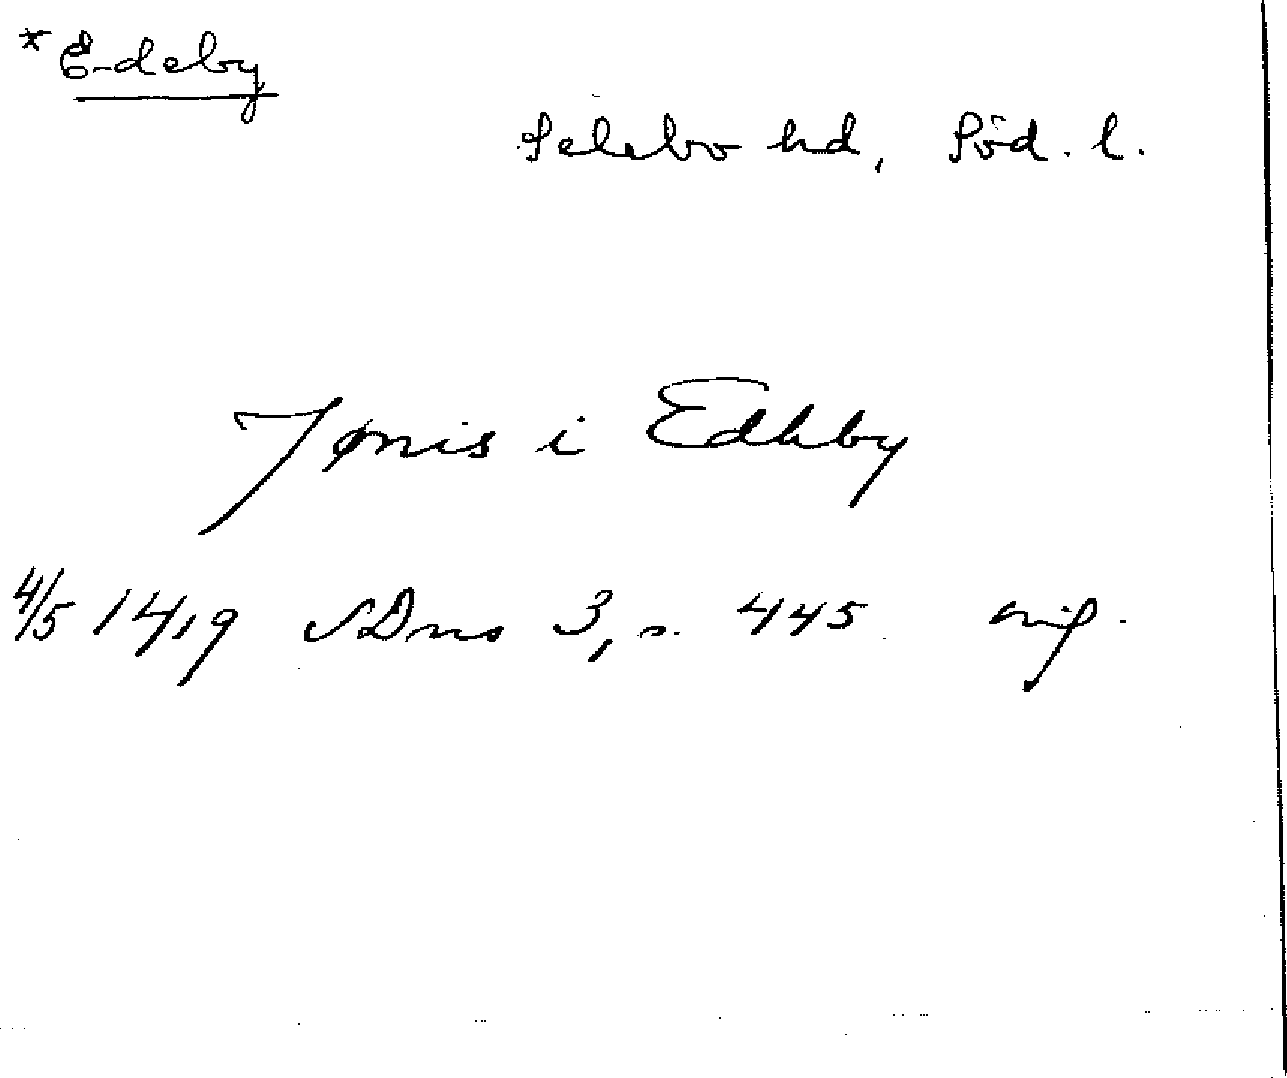 *Edeby
Selebo hd, Söd. l.
Jønis i Edhby
4/5 1419 SDns 3, s. 445 orig.